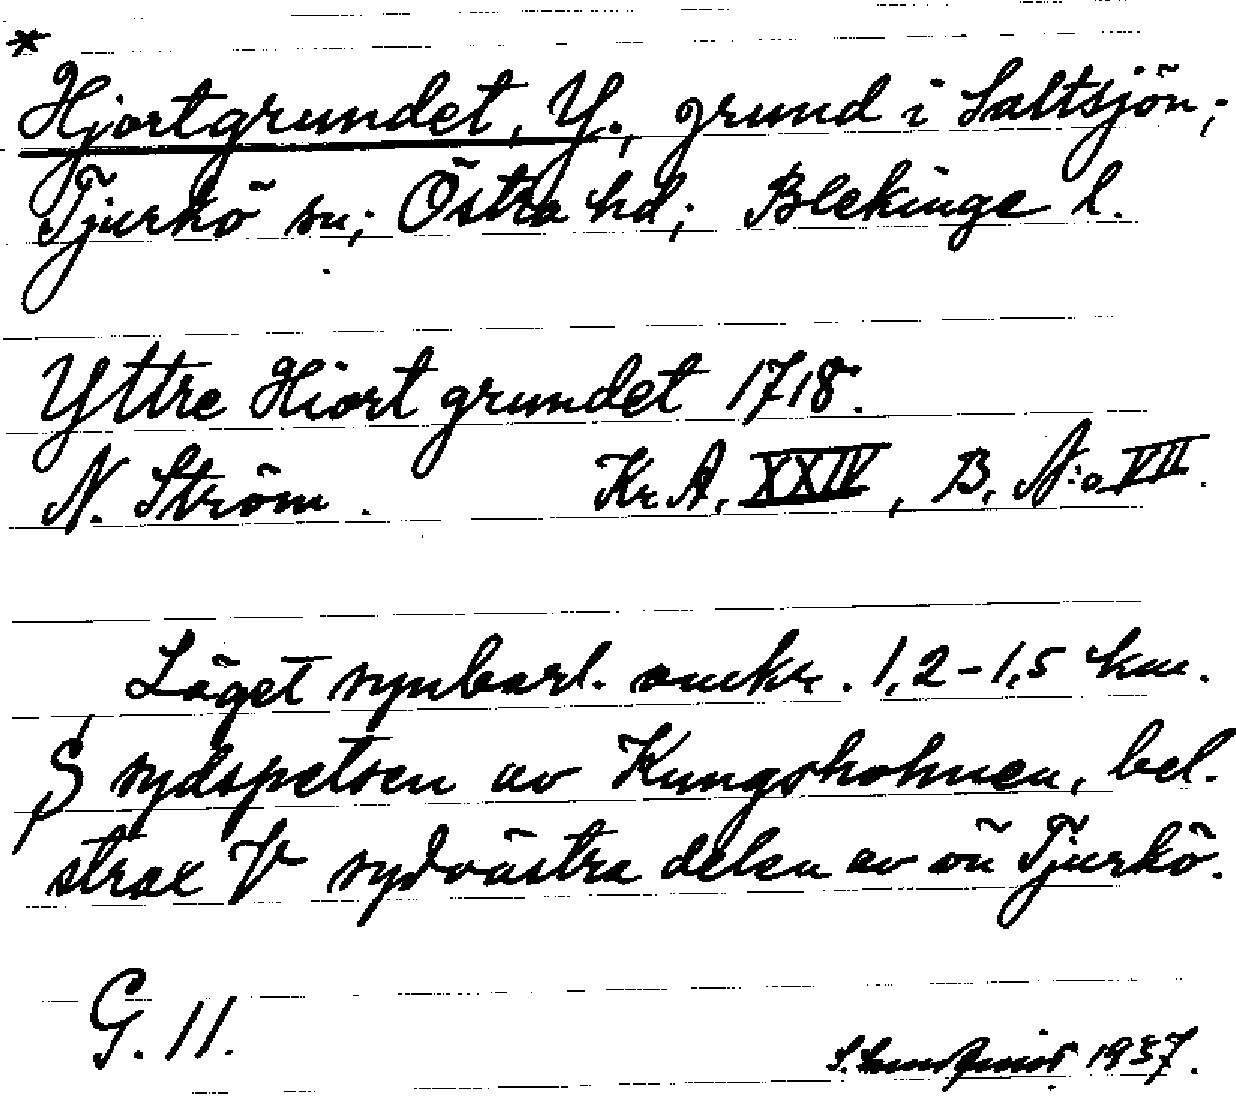 *
Hjortgrundet, Y., grund i Saltsjön;
Tjurkö sn; Östra hd; Blekinge l.
Yttre Hiort grundet 1718.
N. Ström. Kr. A. XXIV, B. N:o VII.
Läget synbarl. omkr. 1,2-1,5 km.
S sydspetsen av Kungsholmen, bel.
strax V sydvästra delen av ön Tjurkö.
G. 11.
S. 1937.